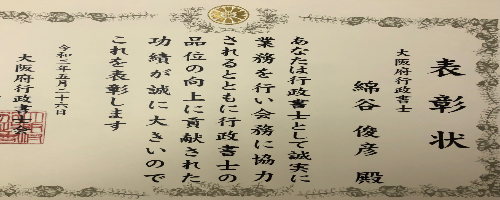 表彰状
大阪府行政書士
綿谷俊彦殿
あなたは行政書士として誠実に
業務を行い会務に協力
されるとともに行政書士の
品位の向上に貢献された
功績が誠に大きいので
これを表彰します
令和二年五月二十六日
大阪府行政書士会